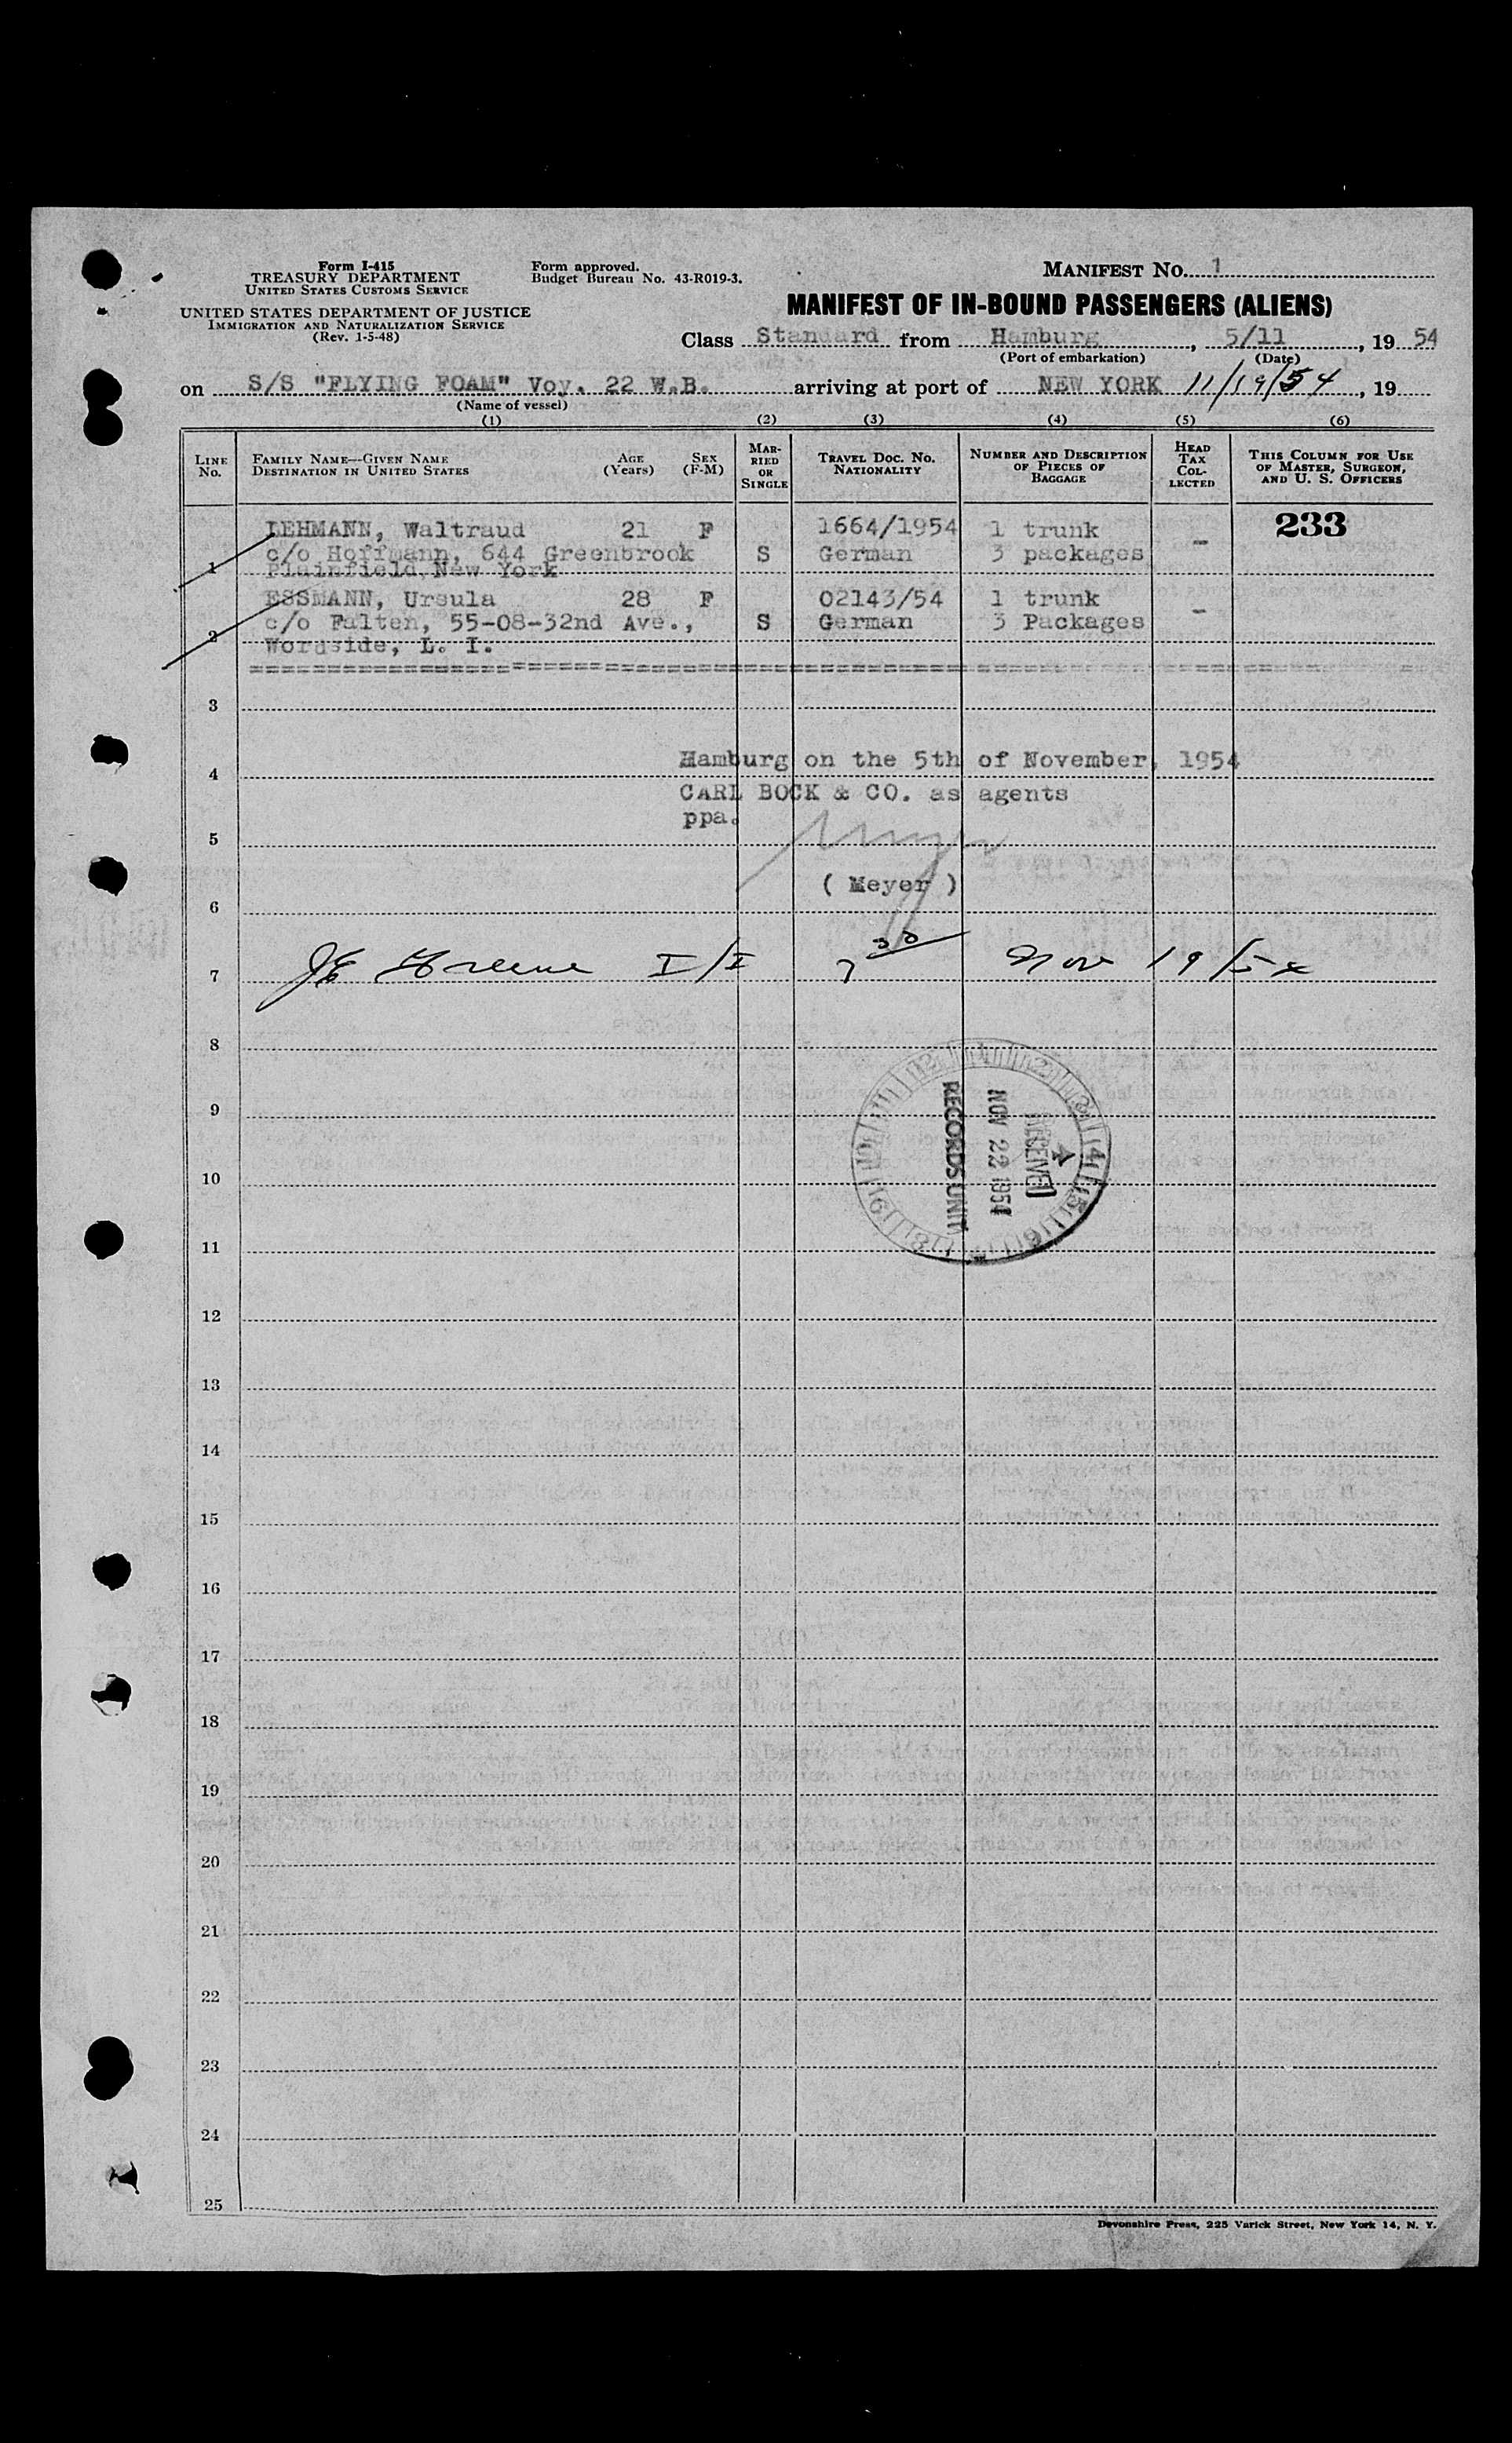 Form I-415
TREASURY DEPARTMENT
UNITED STATES CUSTOMS SERVICE
UNITED STATES DEPARTMENT OF JUSTICE
IMMIGRATION AND NATURALIZATION SERVICE
(Rev. 1-5-48)
Form approved.
Budget Bureau No. 43-R019-3.
MANIFEST NO. 1
MANIFEST OF IN-BOUND PASSENGERS (ALIENS)
Class Standard from Hamburg, 5/11, 19 54
(Port of embarkation) (Date)
on S/S "FLYING FOAM" Voy. 22 W.B. arriving at port of NEW YORK 11/19/54, 19
(Name of vessel)
(1) (2) (3) (4) (5) (6)
LINE No.
FAMILY NAME—GIVEN NAME
DESTINATION IN UNITED STATES
AGE (Years)
SEX (F-M)
MARRIED OR SINGLE
TRAVEL DOC. NO. NATIONALITY
NUMBER AND DESCRIPTION OF PIECES OF BAGGAGE
HEAD TAX COLLECTED
THIS COLUMN FOR USE OF MASTER, SURGEON, AND U. S. OFFICERS
LEHMANN, Waltraud 21 F 1664/1954 1 trunk 233
c/o Hoffmann, 644 Greenbrook S German 3 packages -
1 Plainfield, New York
ESSMANN, Ursula 28 F 02143/54 1 trunk
c/o Falten, 55-08-32nd Ave., S German 3 Packages -
2 Wordside, L. I.
3
Hamburg on the 5th of November, 1954
4
CARL BOCK & CO. as agents
ppa.
5
( Meyer )
6
7 JE Greene I/I 7 30 Nov 19/54
8
9
10
11
RECEIVED
NOV 22 1954
RECORDS UNIT
12
13
14
15
16
17
18
19
20
21
22
23
24
25
Devonshire Press, 225 Varick Street, New York 14, N. Y.